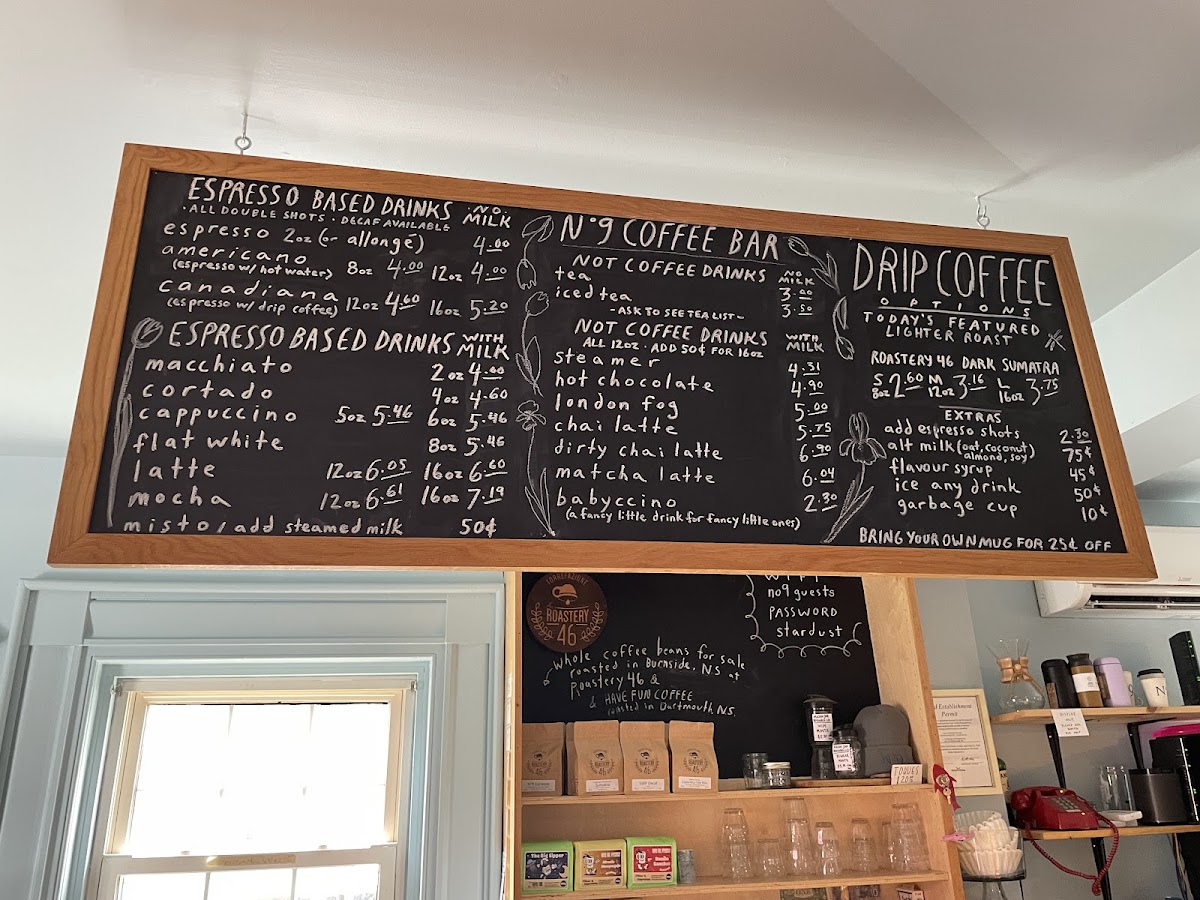 ESPRESSO BASED DRINKS NO MILK
· ALL DOUBLE SHOTS · DECAF AVAILABLE
espresso 2oz (or allongé) 4.00
americano
(espresso w/ hot water) 8oz 4.00 12oz 4.00
canadiana
(espresso w/ drip coffee) 12oz 4.60 16oz 5.20
ESPRESSO BASED DRINKS WITH MILK
macchiato 2oz 4.00
cortado 4oz 4.60
cappuccino 5oz 5.46 6oz 5.46
flat white 8oz 5.46
latte 12oz 6.05 16oz 6.60
mocha 12oz 6.61 16oz 7.19
misto, add steamed milk 50¢
Nº9 COFFEE BAR
NOT COFFEE DRINKS NO MILK
tea 3.00
iced tea 3.50
- ASK TO SEE TEA LIST -
NOT COFFEE DRINKS WITH MILK
ALL 12oz · ADD 50¢ FOR 16oz
steamer 4.31
hot chocolate 4.90
london fog 5.00
chai latte 5.75
dirty chai latte 6.90
matcha latte 6.04
babyccino 2.30
(a fancy little drink for fancy little ones)
DRIP COFFEE
OPTIONS
TODAY'S FEATURED
LIGHTER ROAST
ROASTERY 46 DARK SUMATRA
S 8oz 2.60 M 12oz 3.16 L 16oz 3.75
EXTRAS
add espresso shots 2.30
alt milk (oat, coconut, almond, soy) 75¢
flavour syrup 45¢
ice any drink 50¢
garbage cup 10¢
BRING YOUR OWN MUG FOR 25¢ OFF
TORREFAZIONE
ROASTERY
46
WIFI
no9 guests
PASSWORD
stardust
whole coffee beans for sale
roasted in Burnside, NS at
Roastery 46 &
& HAVE FUN COFFEE
roasted in Dartmouth NS.
ROASTERY
46
ROASTERY
46
ROASTERY
46
TOQUES
The Big Sipper
Establishment
Permit
N